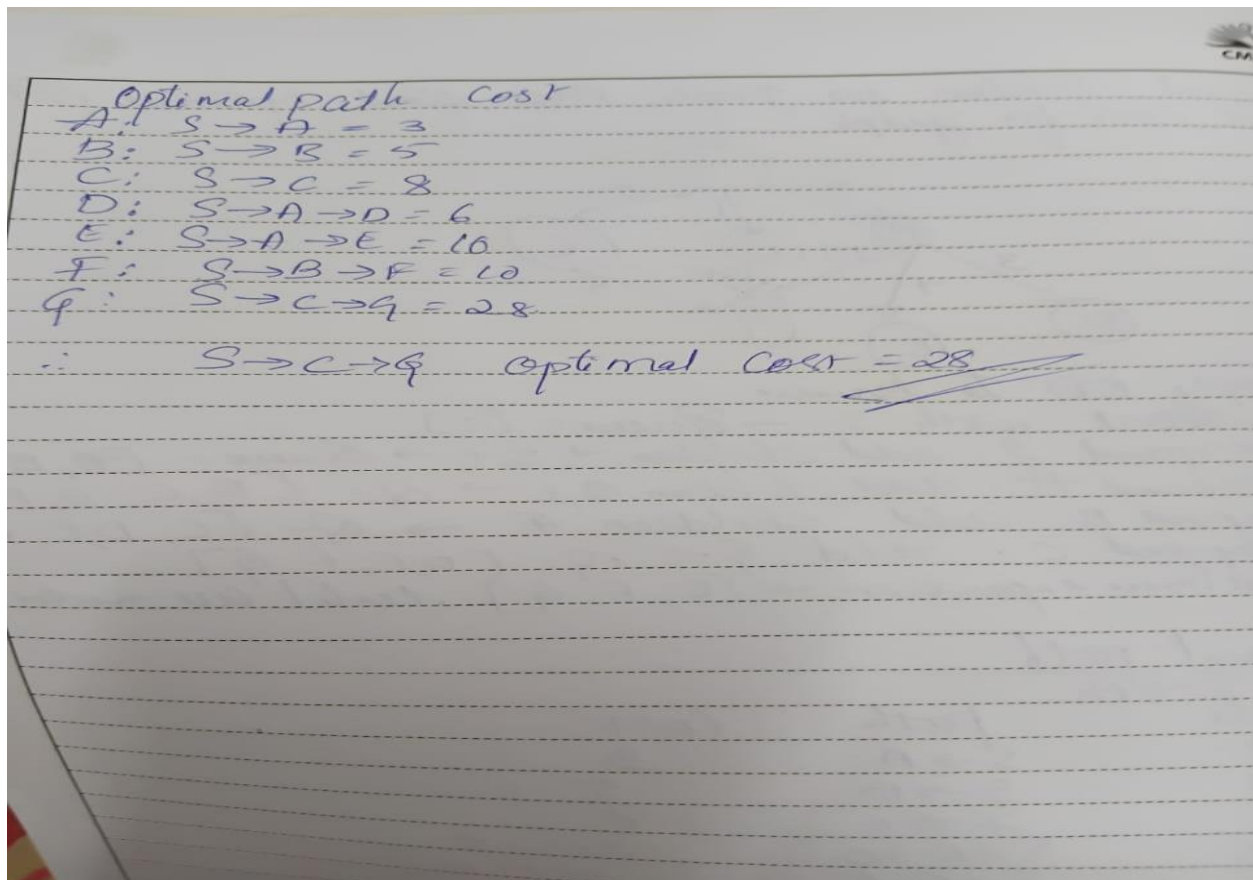 Optimal path cost
A: S → A = 3
B: S → B = 5
C: S → C = 8
D: S → A → D = 6
E: S → A → E = 10
F: S → B → F = 10
G: S → C → G = 28
∴ S → C → G optimal cost = 28